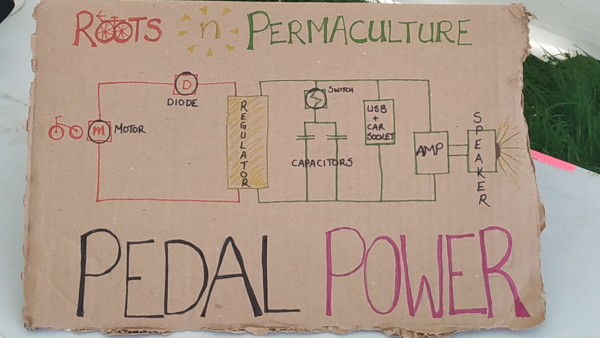 ROOTS n PERMACULTURE
D
DIODE
M MOTOR
REGULATOR
SWITCH
CAPACITORS
USB
+
CAR
SOCKET
AMP
SPEAKER
PEDAL POWER